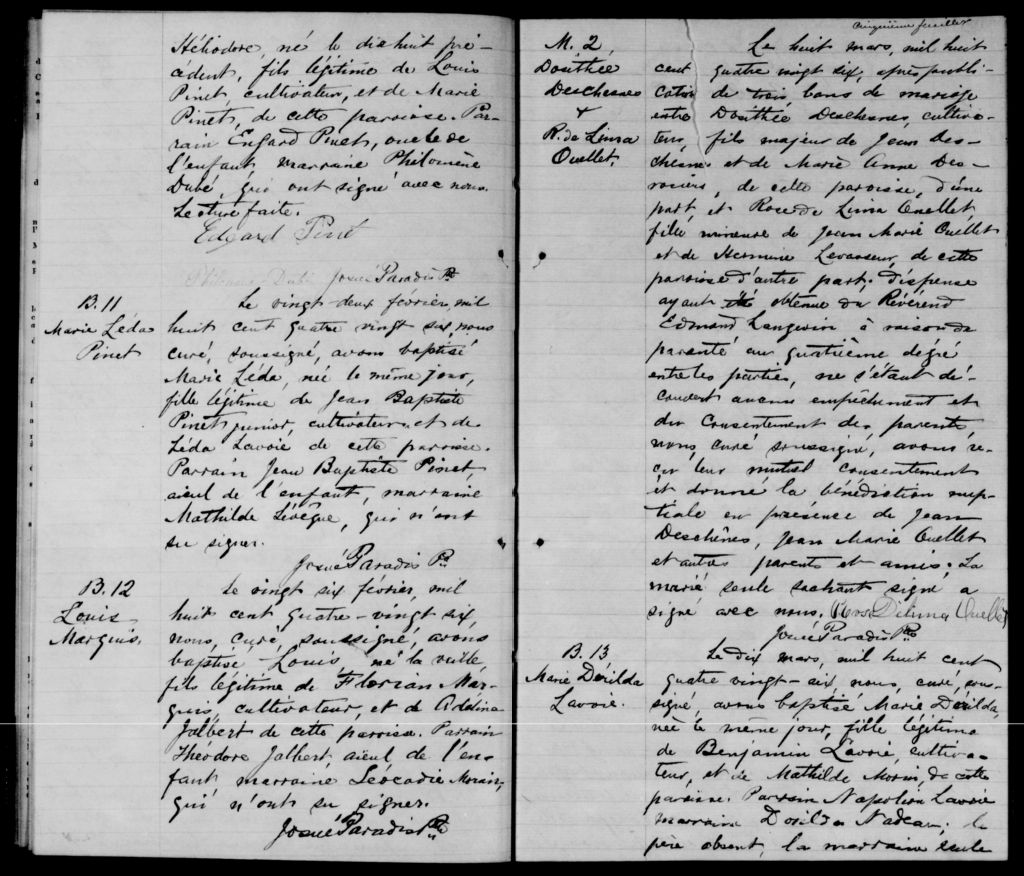 Héliodore, né le dix huit pré-
cédent, fils légitime de Louis
Pinet, cultivateur, et de Marie
Pinet, de cette paroisse. Par-
rain Edgard Pinet, oncle de
l'enfant, marraine Philomène
Dubé, qui ont signé avec nous.
Lecture faite.
Edgard Pinet
Philomène Dubé Josué Paradis Ptre
B. 11
Marie Léda
Pinet
Le vingt-deux février, mil
huit cent quatre vingt six, nous
curé, soussigné, avons baptisé
Marie Léda, née le même jour,
fille légitime de Jean Baptiste
Pinet junior, cultivateur, et de
Léda Lavoie de cette paroisse.
Parrain Jean Baptiste Pinet,
aieul de l'enfant, marraine
Mathilde Lévêque, qui n'ont
su signer.
Josué Paradis Ptre
B. 12
Louis
Marquis.
Le vingt six février, mil
huit cent quatre-vingt six,
nous, curé, soussigné, avons
baptisé Louis, né la veille,
fils légitime de Florian Mar-
quis, cultivateur, et de Adélina
Jalbert de cette paroisse. Parrain
Théodore Jalbert, aieul de l'en-
fant marraine Léocadie Morin,
qui n'ont su signer.
Josué Paradis Ptre
Cinquième feuillet
M. 2
Dosithée
Deschesnes
+
R. de Lima
Ouellet.
Le huit mars, mil huit
cent quatre vingt six, après publi-
cation de trois bans de mariage
entre Dosithée Deschesnes, cultiva-
teur, fils majeur de Jean Des-
chesnes et de Marie Anne Des-
rosiers, de cette paroisse, d'une
part et Rose de Lima Ouellet,
fille mineure de Jean Marie Ouellet
et de Hermine Levasseur, de cette
paroisse d'autre part; dispense
ayant été obtenue du Révérend
Edmond Langevin à raison de
parenté au quatrième degré
entre les parties, ne s'étant dé-
couvert aucun empêchement et
du consentement des parents,
nous, curé soussigné, avons re-
çu leur mutuel consentement
et donné la bénédiction nup-
tiale en présence de Jean
Deschênes, Jean Marie Ouellet
et autres parents et amis. La
marié seule sachant signé a
signé avec nous. Rose Délima Ouellet
Josué Paradis Ptre
B. 13
Marie Dérilda
Lavoie.
Le dix mars, mil huit cent
quatre vingt-six, nous, curé, sous-
signé, avons baptisé Marie Dérilda,
née le même jour, fille légitime
de Benjamin Lavoie, cultiva-
teur, et de Mathilde Morin, de cette
paroisse. Parrain Napoléon Lavoie
marraine Dorilda Nadeau; le
père absent, la marraine seule